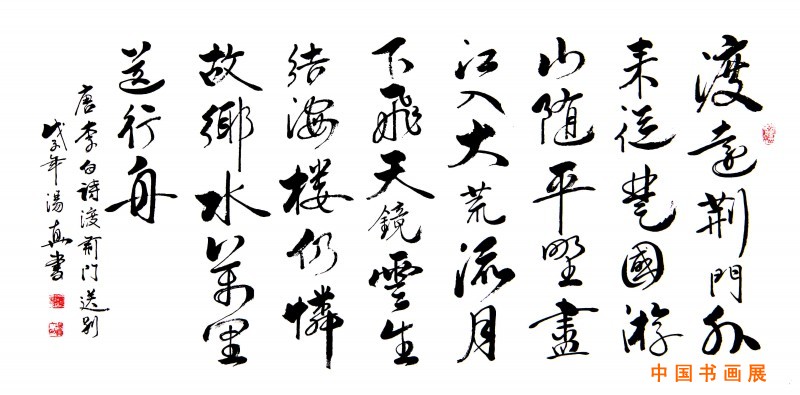 渡遠荆門外
来從楚國游
山随平野盡
江入大荒流月
下飛天鏡雲生
结海楼仍憐
故鄉水萬里
送行舟
唐李白诗渡荆门送别
戊子年湯真書
中国书画展